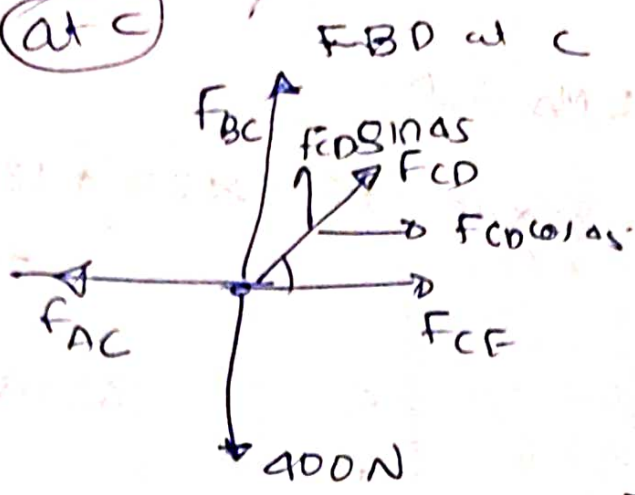 at C
FBD at C
FBC
FCD sin 45
FCD
FCD cos 45
FAC
FCE
400N